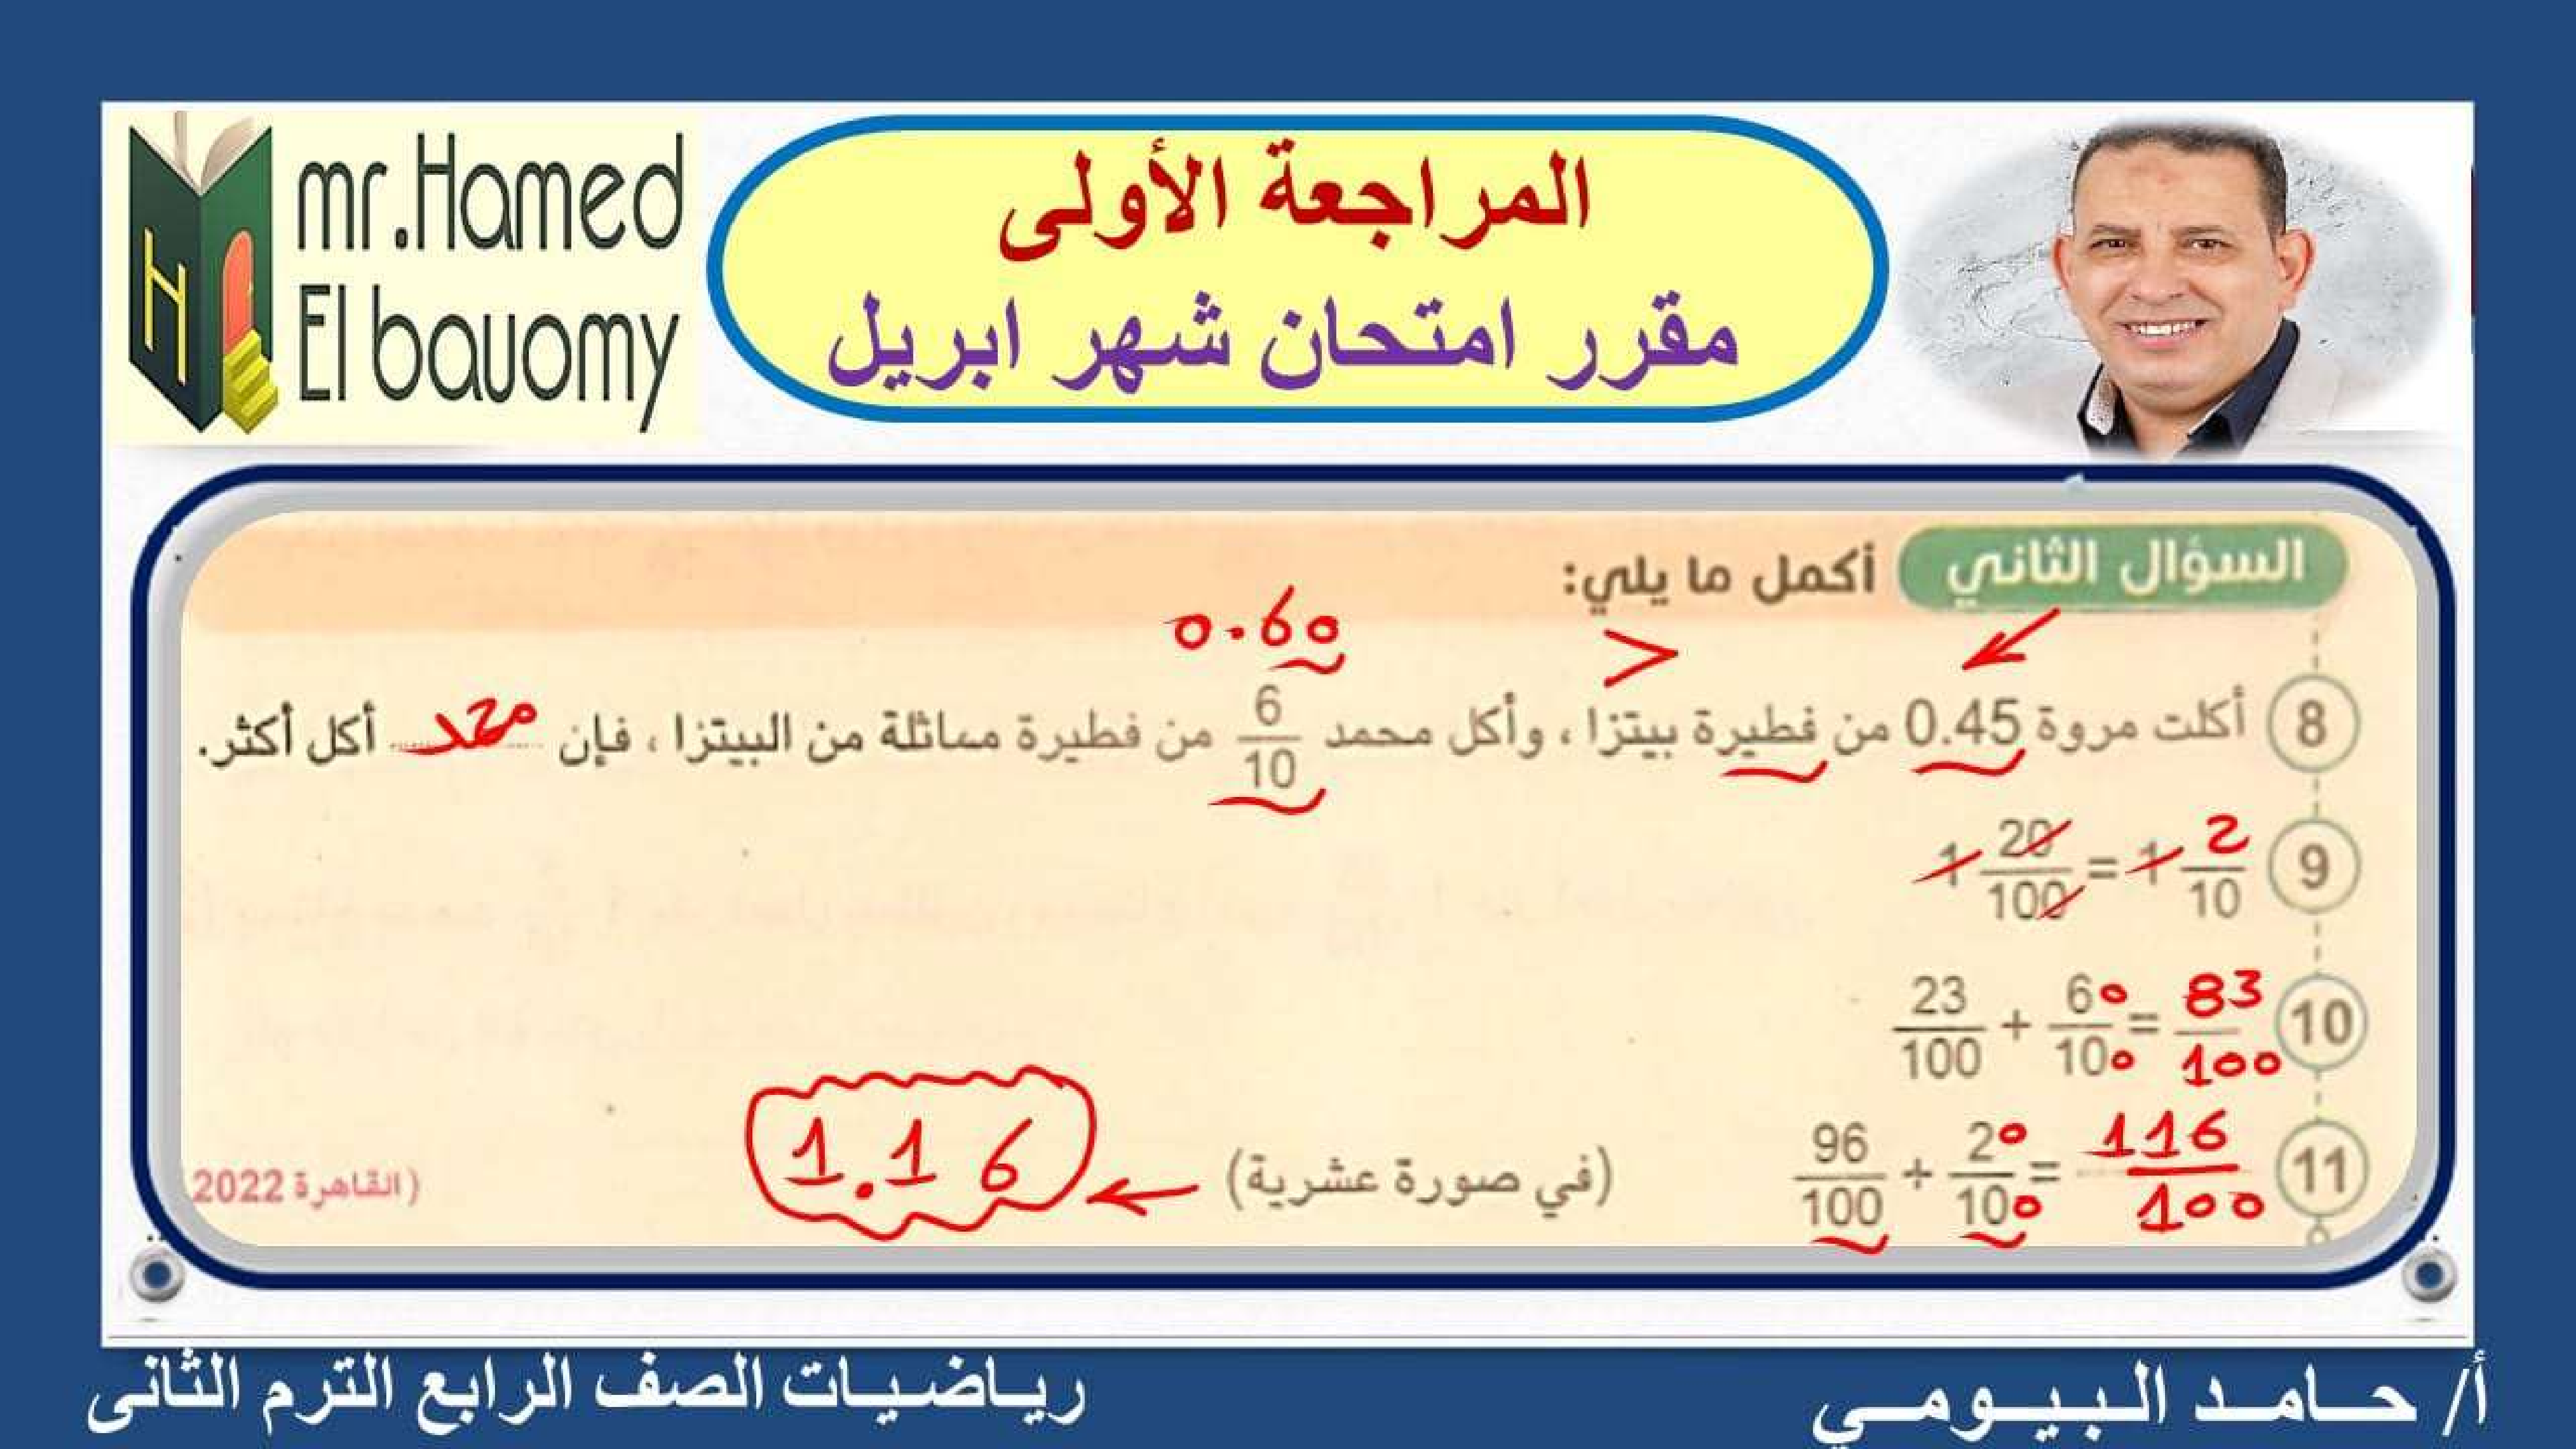 mr.Hamed
El bauomy
المراجعة الأولى
مقرر امتحان شهر ابريل
السؤال الثاني أكمل ما يلي:
0.60
>
8 أكلت مروة 0.45 من فطيرة بيتزا ، وأكل محمد 6/10 من فطيرة مماثلة من البيتزا ، فإن محمد أكل أكثر.
9 1 20/100 = 1 2/10
10 23/100 + 60/100 = 83/100
11 96/100 + 20/100 = 116/100 (في صورة عشرية) 1.16 (القاهرة 2022
أ/ حامد البيومي
رياضيات الصف الرابع الترم الثانى